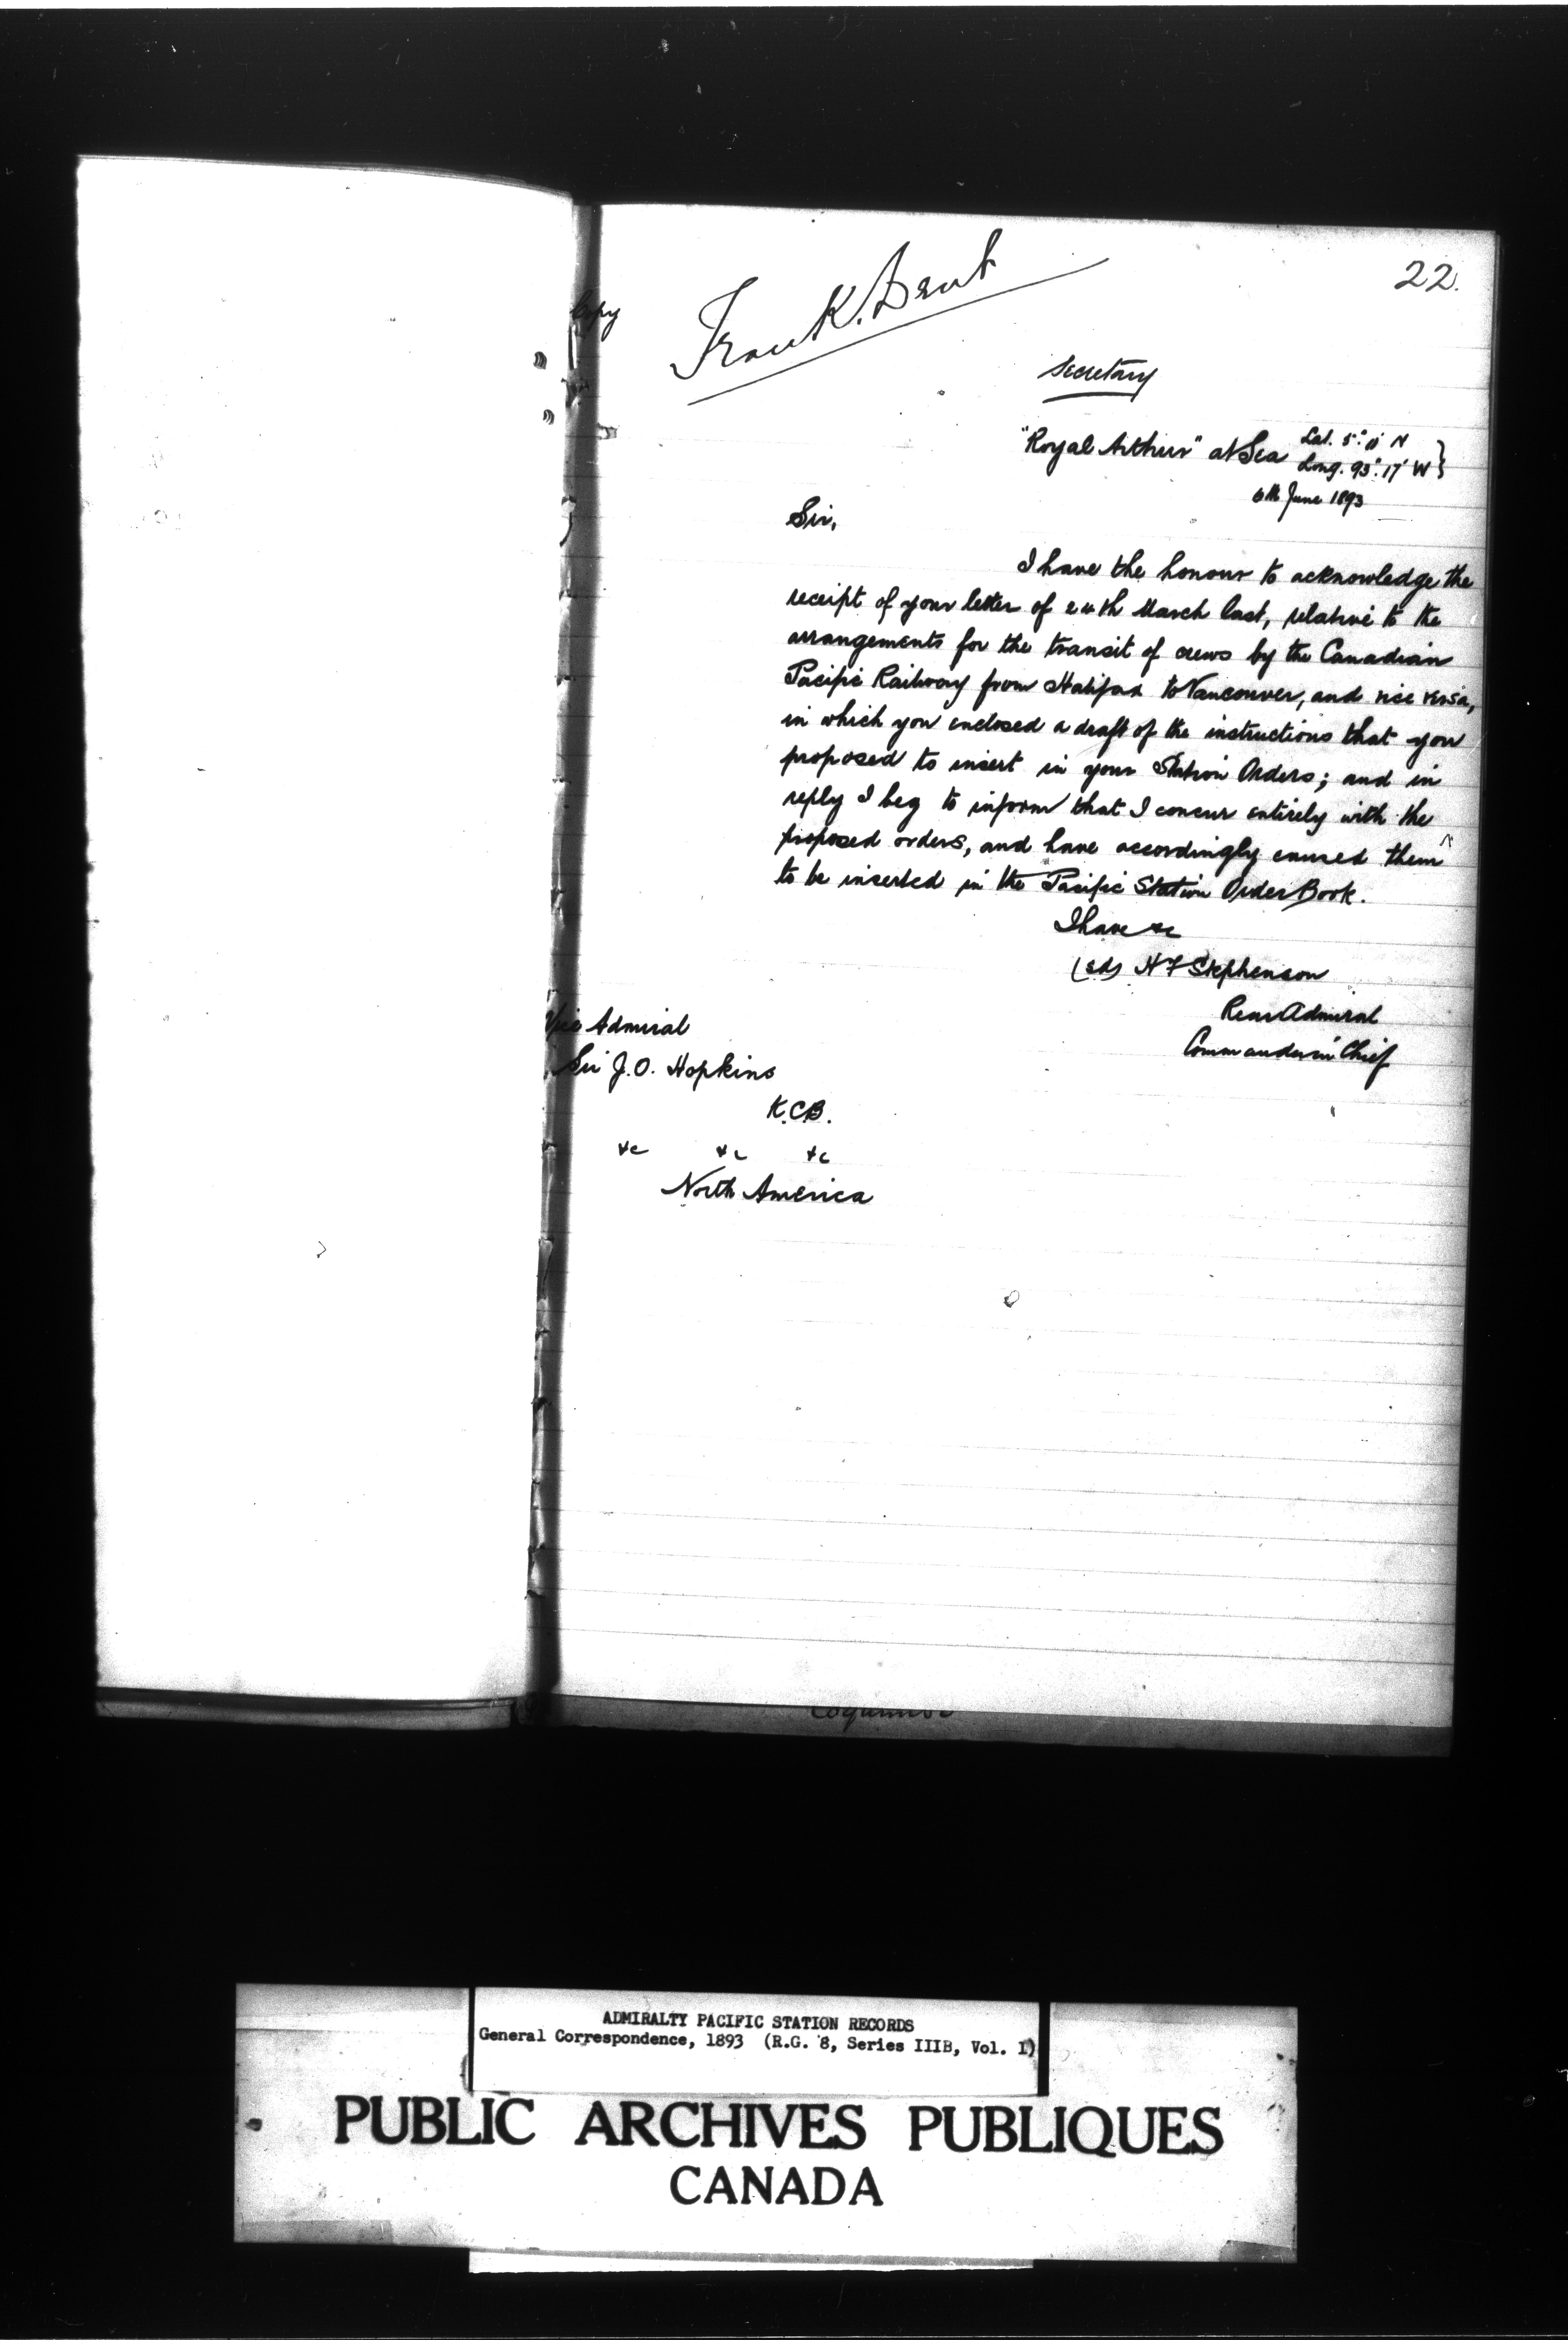 22.
Copy
Frank. Dent
Secretary
"Royal Arthur" at Sea Lat. 5°. 11' N
Long. 93°. 17' W }
6th June 1893
Sir,
I have the honour to acknowledge the
receipt of your letter of 24th March last, relative to the
arrangements for the transit of crews by the Canadian
Pacific Railway from Halifax to Vancouver, and vice versa,
in which you enclosed a draft of the instructions that you
proposed to insert in your Station Orders; and in
reply I beg to inform that I concur entirely with the
proposed orders, and have accordingly caused them
to be inserted in the Pacific Station Order Book.
I have &c
(sd) H F Stephenson
Rear Admiral
Commander in Chief
Vice Admiral
Sir J. O. Hopkins
K.C.B.
&c &c &c
North America
ADMIRALTY PACIFIC STATION RECORDS
General Correspondence, 1893 (R.G. 8, Series IIIB, Vol. 1)
PUBLIC ARCHIVES PUBLIQUES
CANADA